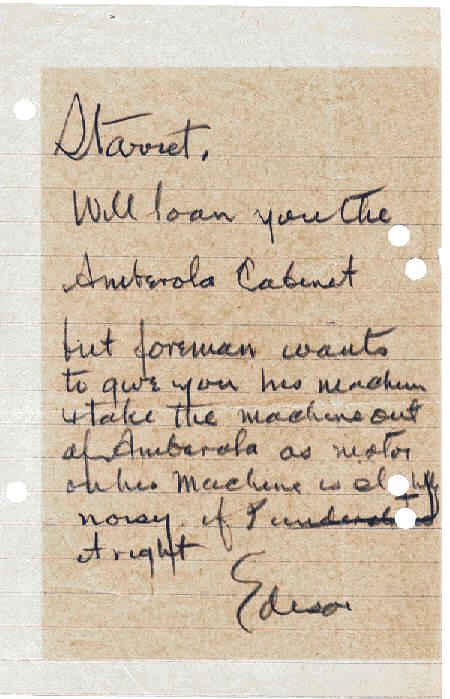 Starret,
Will loan you the
Amberola Cabinet
but foreman wants
to give you his machine
& take the machine out
of Amberola as motor
on his Machine is slightly
noisy if I understand
it right
Edison